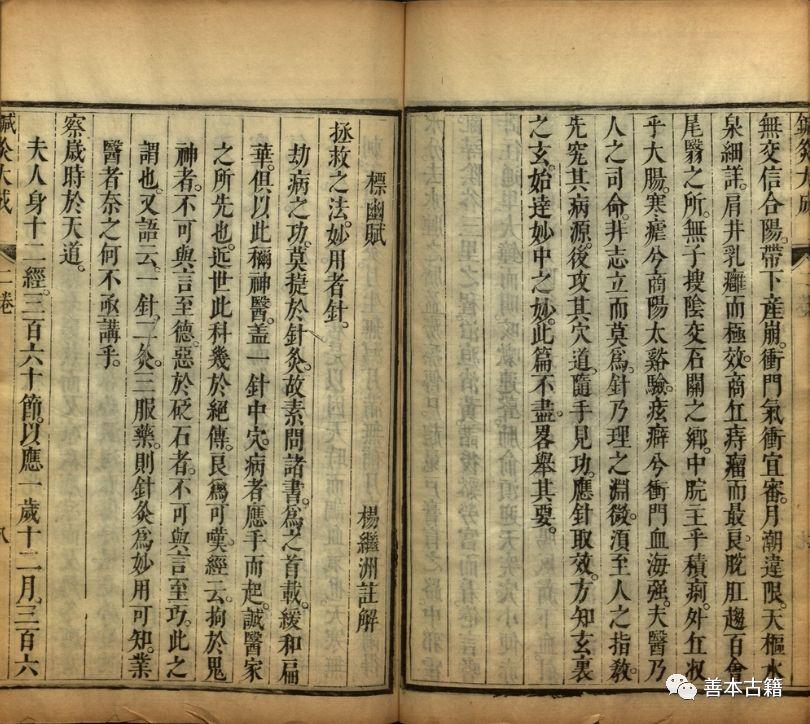 鍼灸大成
無交信合陽。帶下産崩。衝門氣衝宜審。月潮違限。天樞水
泉細詳。肩井乳癰而極效。商丘痔瘤而最良。脫肛趨百會
尾翳之所。無子搜陰交石關之鄉。中脘主乎積痢。外丘収
乎大腸。寒瘧兮商陽太谿驗。痃癖兮衝門血海強。夫醫乃
人之司命。非志立而莫爲。針乃理之淵微。須至人之指教。
先究其病源。後攻其穴道。隨手見功。應針取效。方知玄裏
之玄。始達妙中之妙。此篇不盡。畧舉其要。
標幽賦
楊繼洲註解
拯救之法。妙用者針。
劫病之功。莫捷於針灸。故素問諸書。爲之首載。緩和扁
華。俱以此稱神醫。蓋一針中穴。病者應手而起。誠醫家
之所先也。近世此科幾於絕傳。良爲可嘆。經云。拘於鬼
神者。不可與言至德。惡於砭石者。不可與言至巧。此之
謂也。又語云。一針。二灸。三服藥。則針灸爲妙用可知。業
醫者奈之何不亟講乎。
察歲時於天道。
夫人身十二經。三百六十節。以應一歲十二月。三百六
鍼灸大成
二卷
八
善本古籍